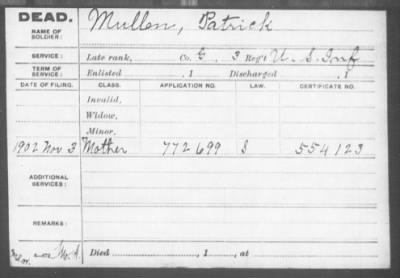 DEAD.
NAME OF SOLDIER: Mullen, Patrick
SERVICE: Late rank, Co. G 3 Reg't U. S. Inf
TERM OF SERVICE: Enlisted , 1 Discharged , 1
DATE OF FILING. CLASS. APPLICATION NO. LAW. CERTIFICATE NO.
Invalid,
Widow,
Minor,
1902 Nov 3 Mother 772699 554123
ADDITIONAL SERVICES:
REMARKS:
Died , 1 , at